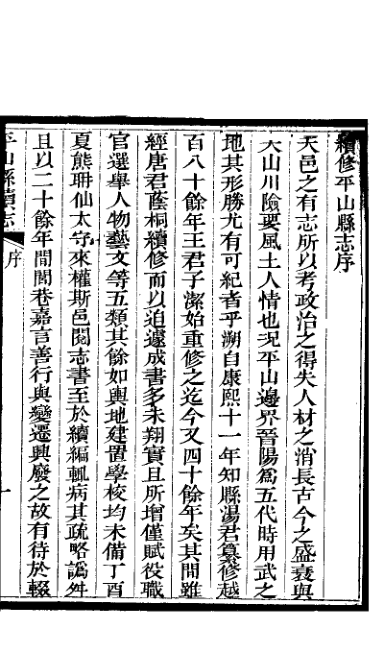 續修平山縣志序
夫邑之有志所以考政治之得失人材之消長古今之盛衰與
夫山川險要風土人情也況平山邊界晉陽為五代時用武之
地其形勝尤有可紀者乎溯自康熙十一年知縣湯君纂修越
百八十餘年王君子潔始重修之迄今又四十餘年矣其間雖
經唐君蔭桐續修而以迫遽成書多未翔實且所增僅賦役職
官選舉人物藝文等五類其餘如輿地建置學校均未備丁酉
夏熊珊仙太守來權斯邑閱志書至於續編輒病其疏略譌舛
且以二十餘年間閭巷嘉言善行與變遷興廢之故有待於輟
平山縣續志
序
一